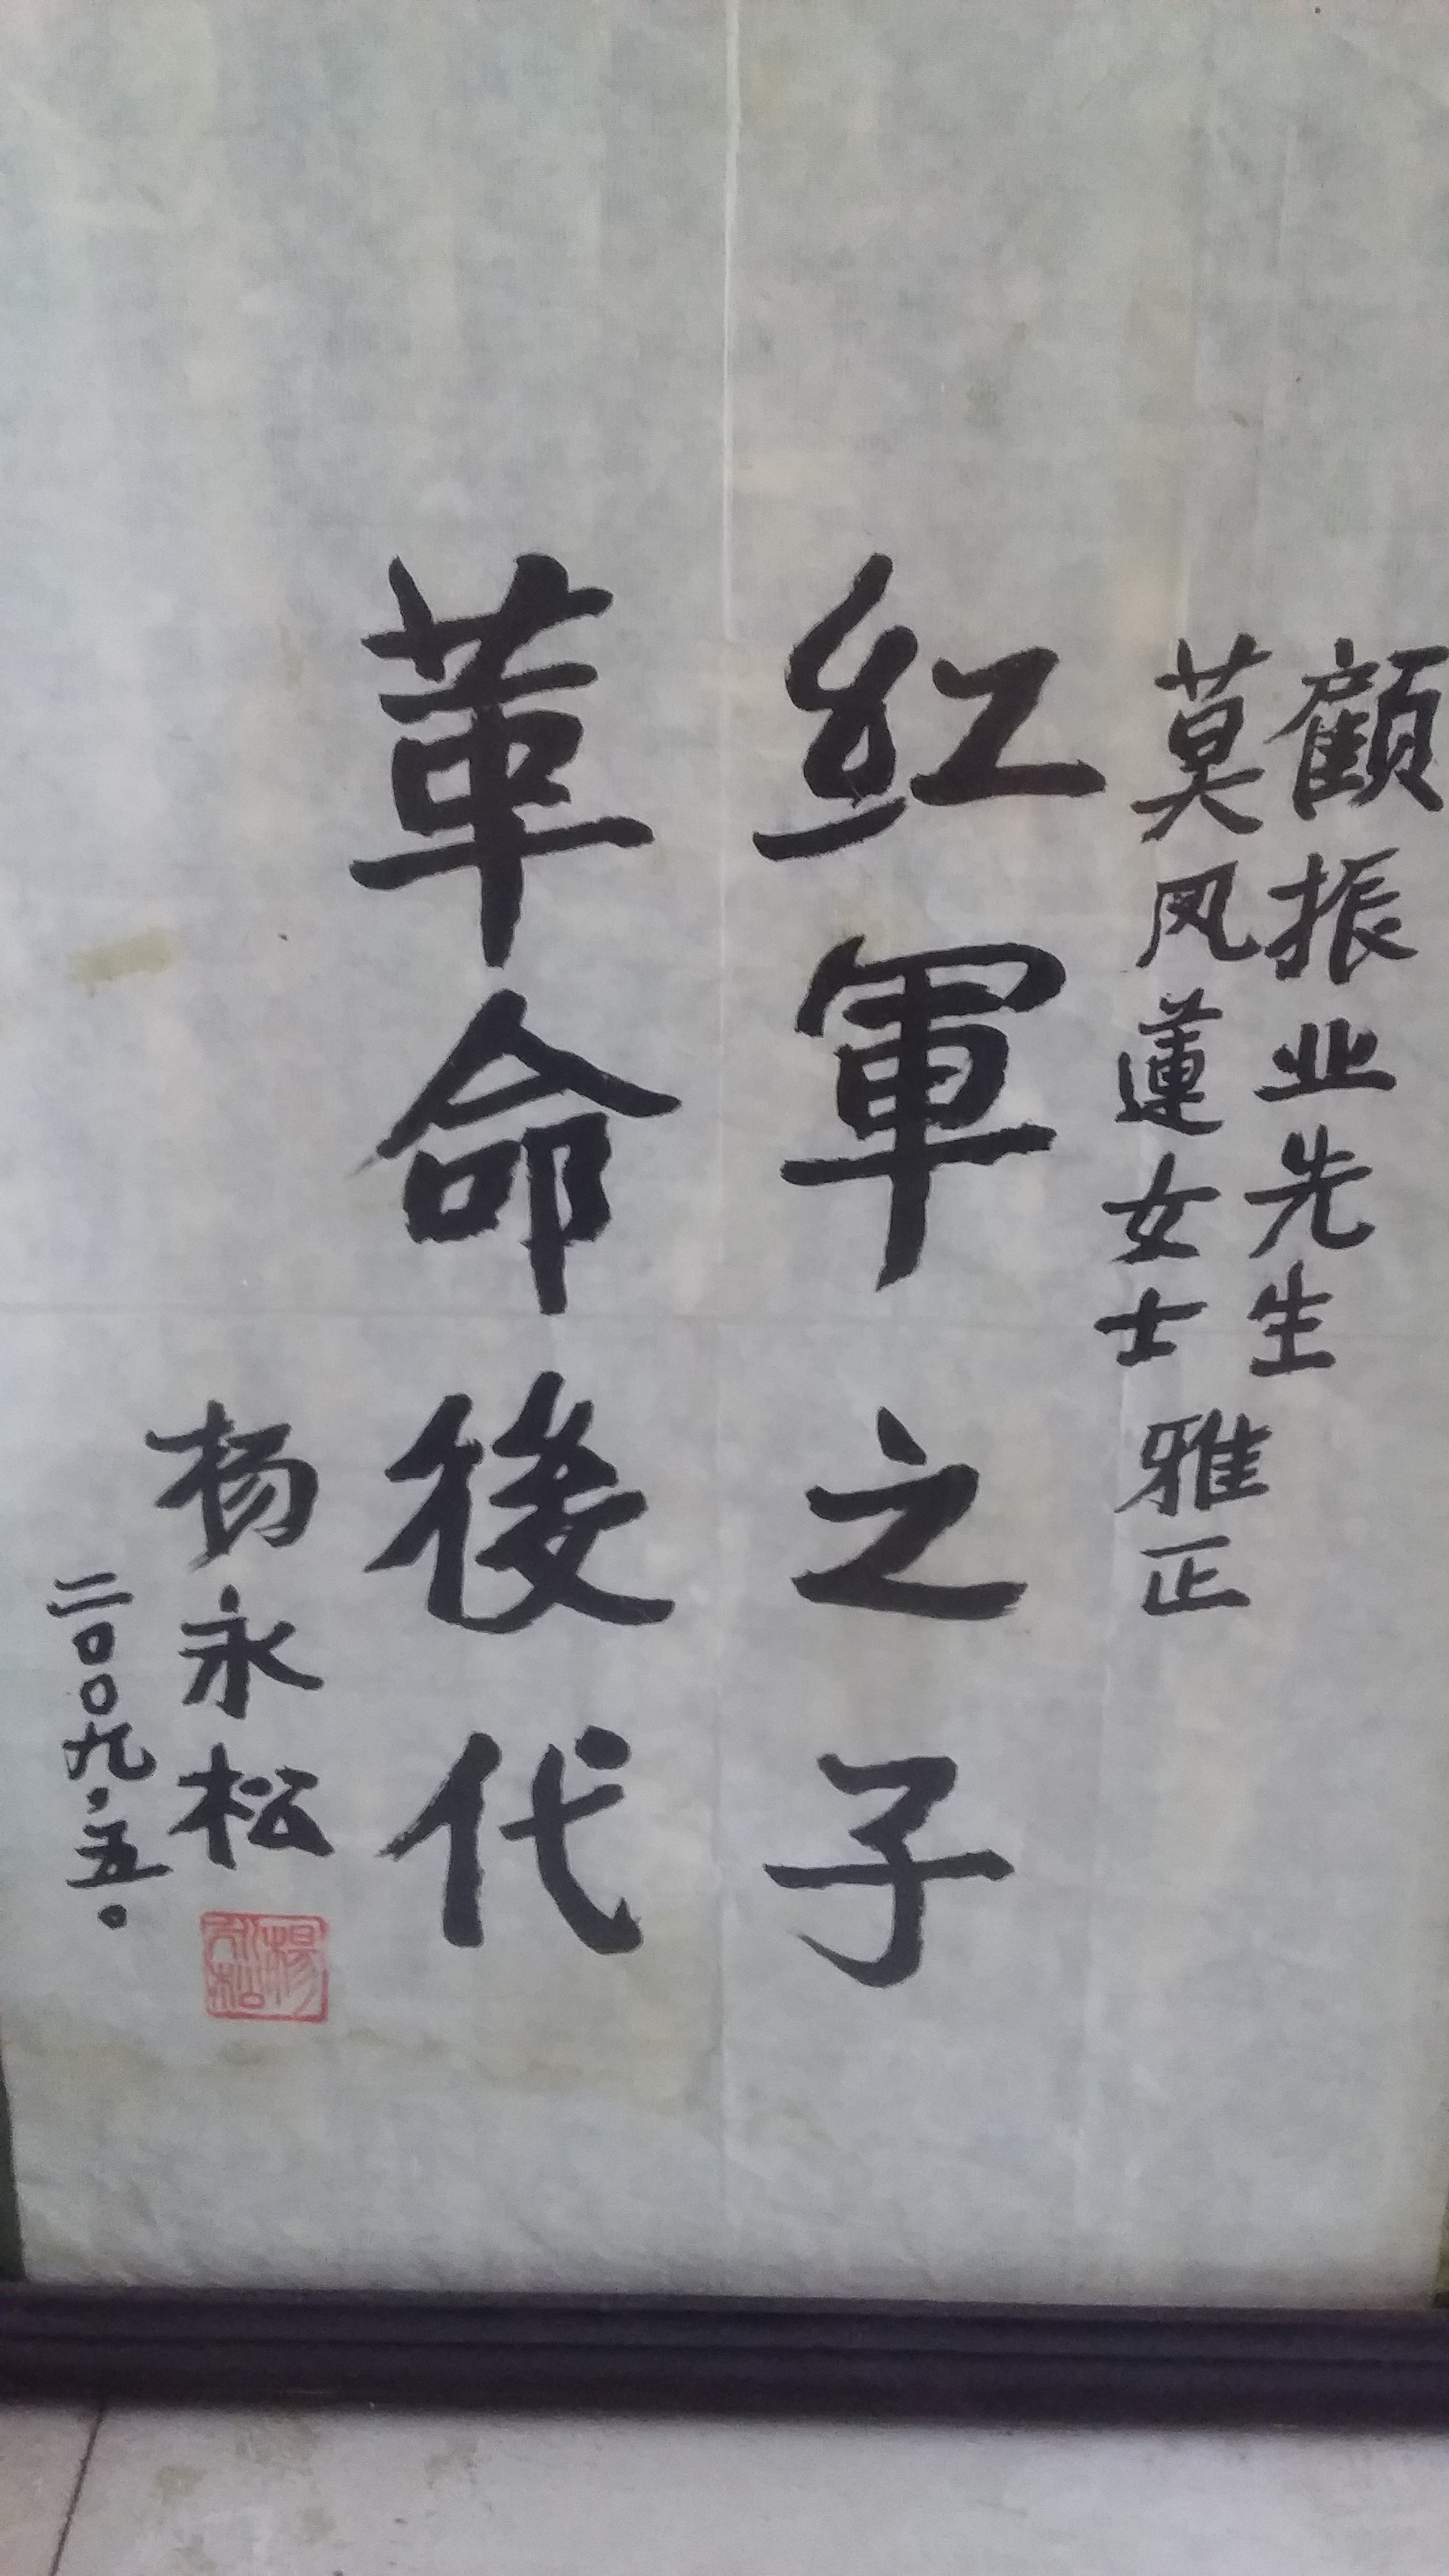 顧振业先生
莫凤蓮女士
雅正
紅軍之子
革命後代
杨永松
二〇〇九.五。
楊永松